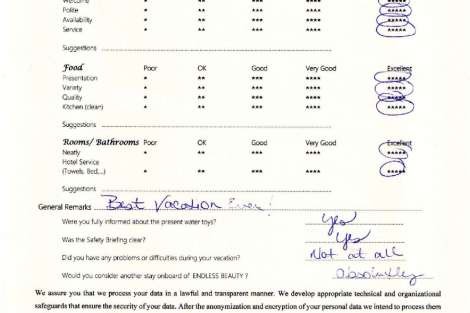 Welcome * ** *** **** *****
Polite * ** *** **** *****
Availability * ** *** **** *****
Service * ** *** **** *****
Suggestions
Food Poor OK Good Very Good Excellent
Presentation * ** *** **** *****
Variety * ** *** **** *****
Quality * ** *** **** *****
Kitchen (clean) * ** *** **** *****
Suggestions
Rooms/ Bathrooms Poor OK Good Very Good Excellent
Neatly * ** *** **** *****
Hotel Service
(Towels, Bed,...) * ** *** **** *****
Suggestions
General Remarks Best Vacation Ever!
Were you fully informed about the present water toys? Yes
Was the Safety Briefing clear? Yes
Did you have any problems or difficulties during your vacation? Not at all
Would you consider another stay onboard of ENDLESS BEAUTY ? Absolutley
We assure you that we process your data in a lawful and transparent manner. We develop appropriate technical and organizational
safeguards that ensure the security of your data. After the anonymization and encryption of your personal data we intend to process them